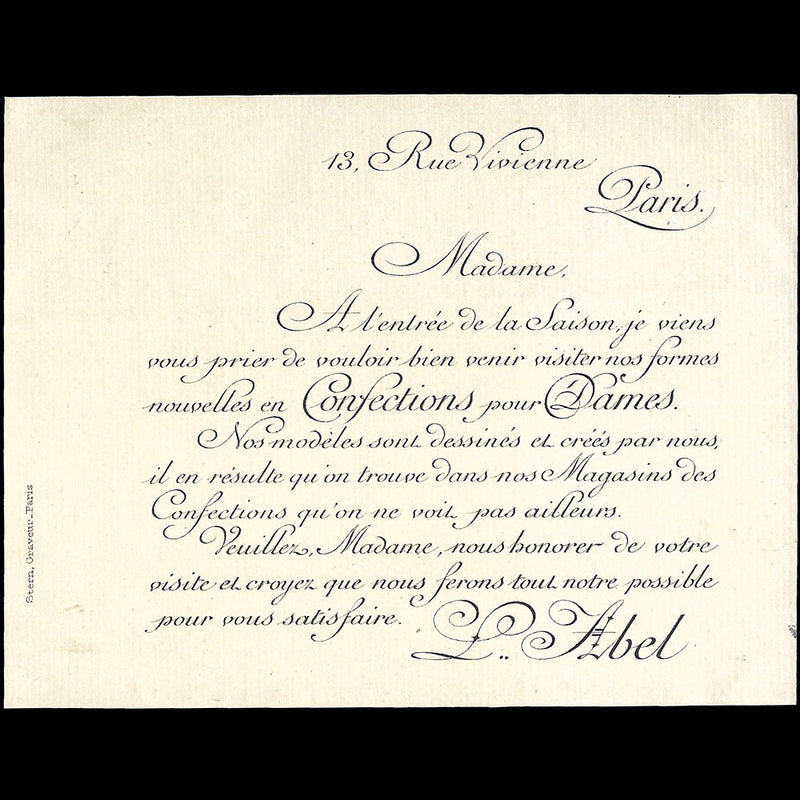 13, Rue Vivienne
Paris.
Madame,
A l'entrée de la Saison, je viens
vous prier de vouloir bien venir visiter nos formes
nouvelles en Confections pour Dames.
Nos modèles sont dessinés et créés par nous,
il en résulte qu'on trouve dans nos Magasins des
Confections qu'on ne voit pas ailleurs.
Veuillez, Madame, nous honorer de votre
visite et croyez que nous ferons tout notre possible
pour vous satisfaire.
L.. Abel
Stern, Graveur_Paris